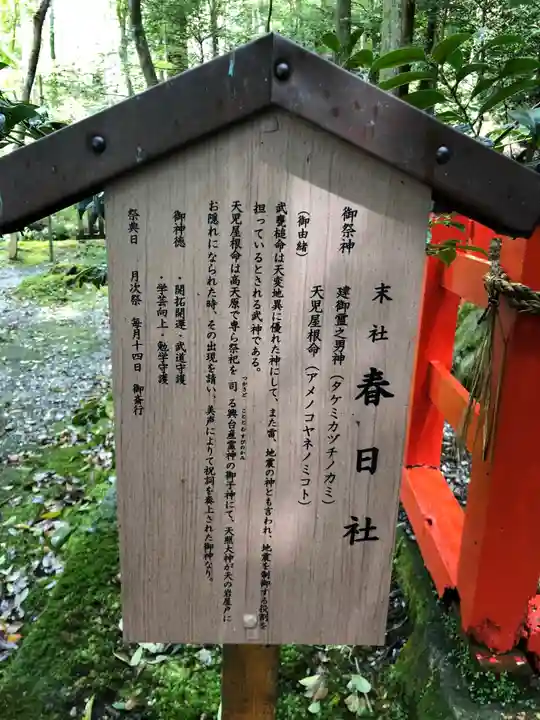 末社 春日社
御祭神 建御雷之男神（タケミカヅチノカミ）
天児屋根命（アメノコヤネノミコト）
（御由緒）
武甕槌命は天変地異に優れた神にして、また雷、地震の神とも言われ、地震を制御する役割を
担っているとされる武神である。
天児屋根命は高天原で専ら祭祀を司る興台産霊神の御子神にて、天照大神が天の岩屋戸に
つかさど こごとむすびのかみ
お隠れになられた時、その出現を請い、美声によりて祝詞を奏上された御神なり。
御神徳 ・開拓開運・武道守護
・学芸向上・勉学守護
祭典日 月次祭 毎月十四日 御斎行